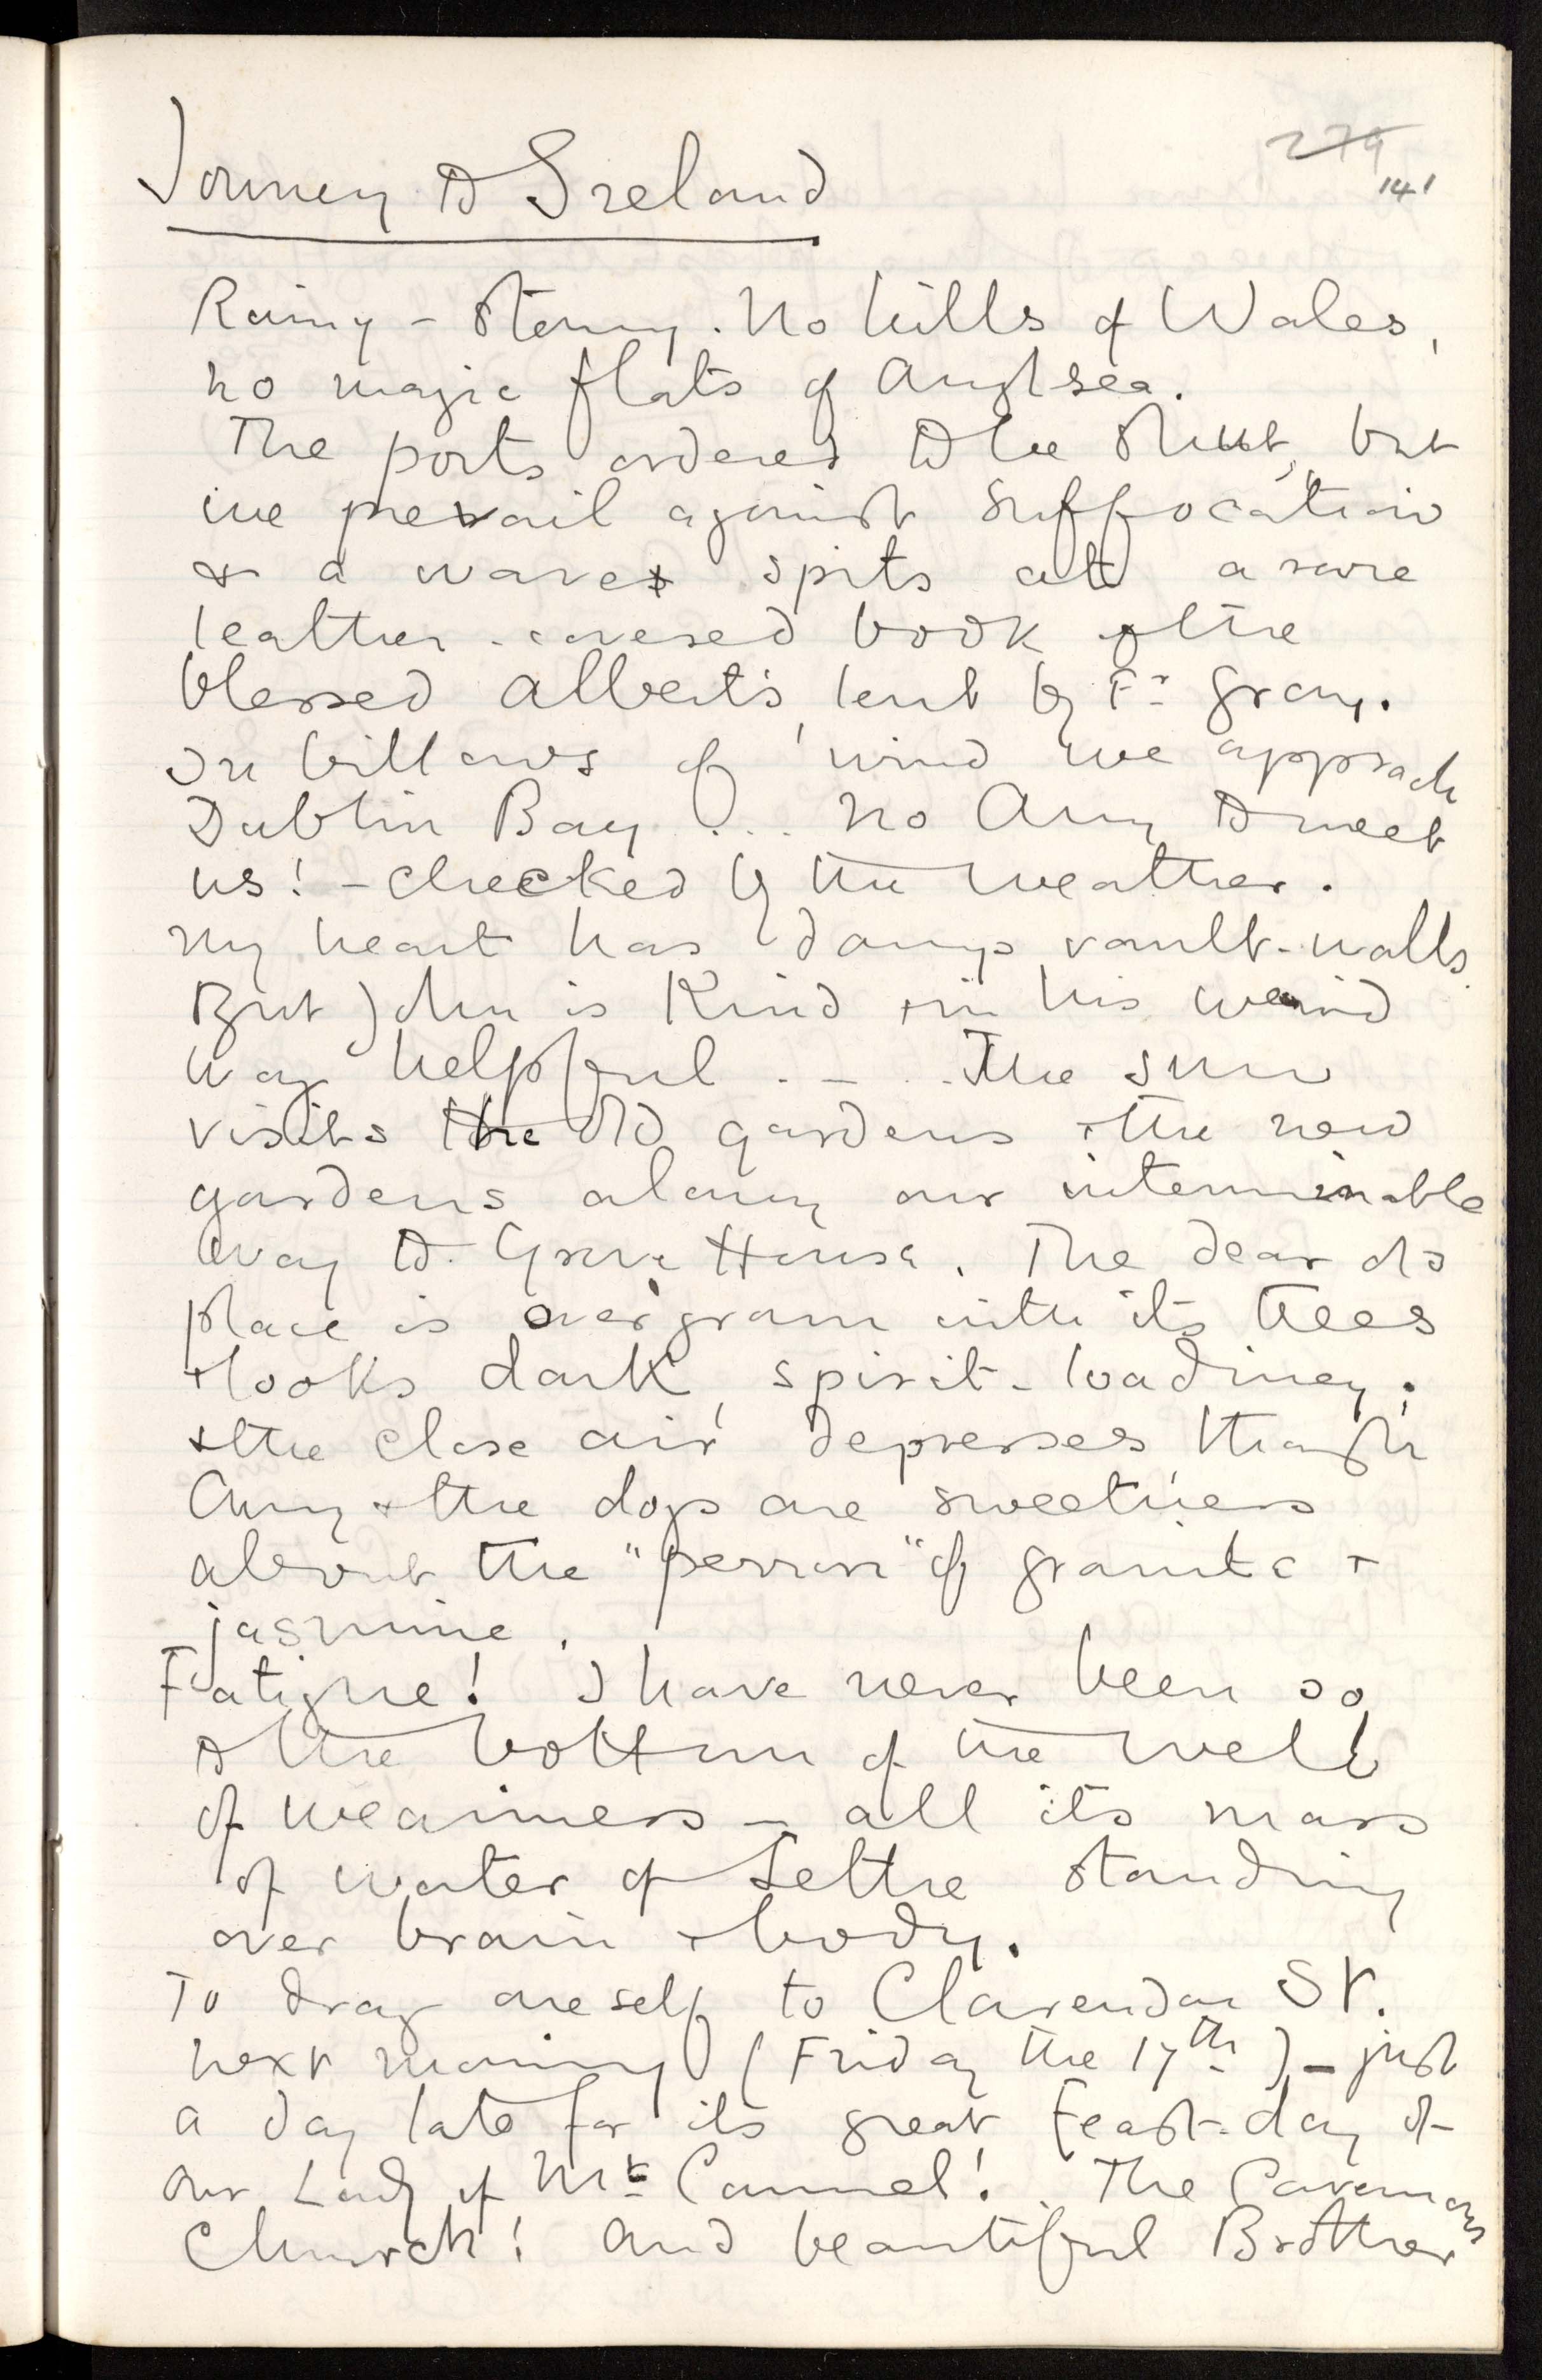 Journey to Ireland
279
141
Rainy – stormy. No hills of Wales,
no magic flats of Anglsea.
The ports ordered to be shut, but
we prevail against suffocation
& a wave spits at a rare
leather-covered book of the
blessed Albert's, lent by Fr Gray.
In billows of wind we approach
Dublin Bay ... No Amy to meet
us! – checked by the weather.
My heart has damp vault-walls.
But John is kind & in his weird
way helpful . – . . The sun
visits the old gardens & the new
gardens along our interminable
way to Grove House. The dear old
place is overgrown with its trees
& looks dark, spirit-loading;
& the close air depresses though
Amy & the dogs are sweetness
about the "perron" of granite &
jasmine.
Fatigue! I have never been so
to the bottom of the well
of weariness – all its mass
of water of Lethe standing
over brain & body.
To drag oneself to Clarendon St.
next morning (Friday the 17th) – just
a day late for its great Feast-day of
Our Lady of Mt Carmel! The Cavernous
Church! And beautiful Brother